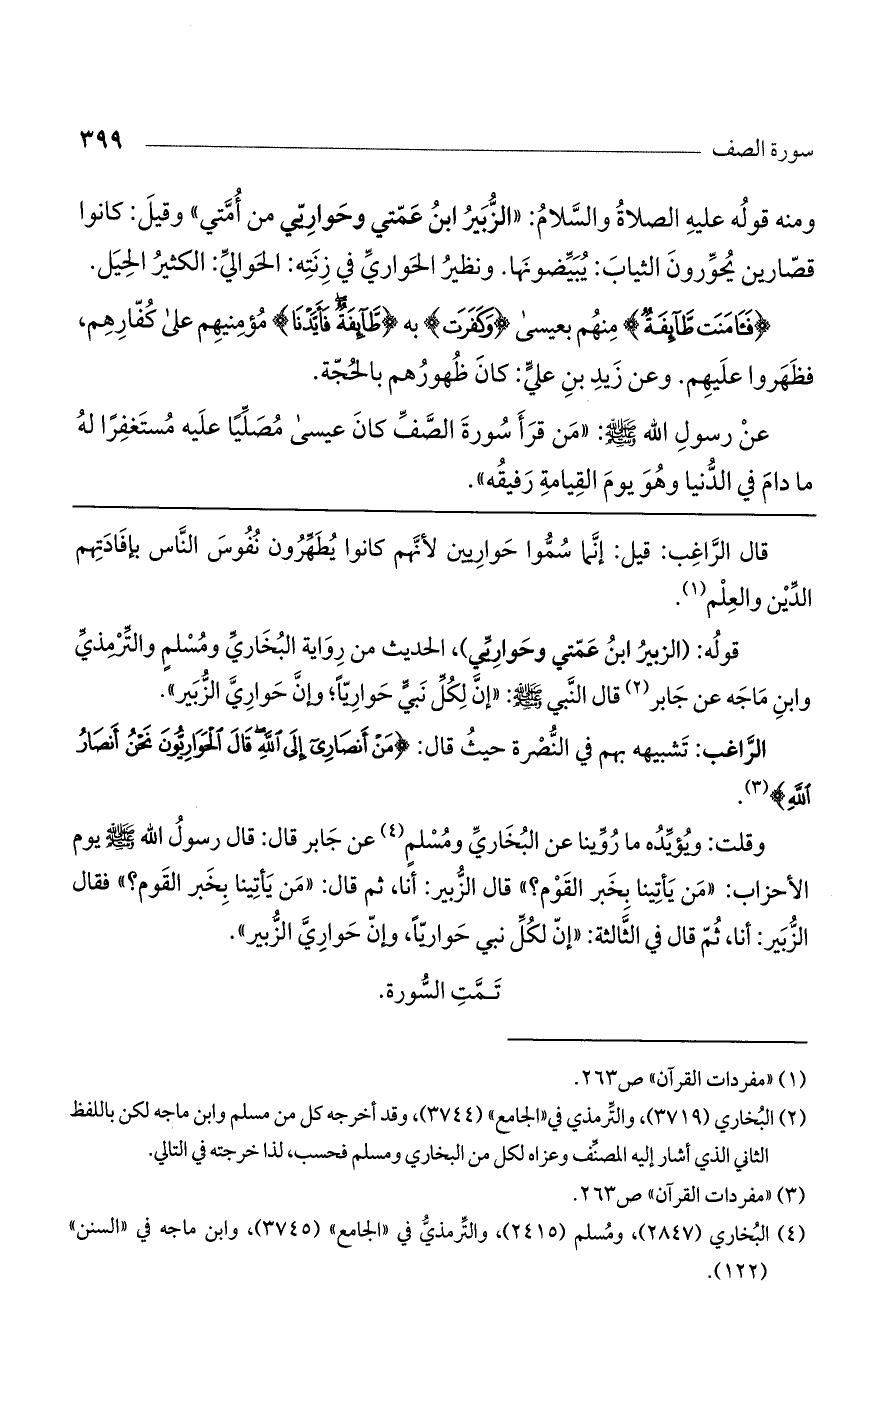 سورة الصف ٣٩٩
ومنه قولُه عليهِ الصلاةُ والسَّلامُ: «الزُّبَيرُ ابنُ عَمّتي وحَوارِيّي من أُمَّتي» وقيلَ: كانوا
قصّارين يُحوِّرونَ الثيابَ: يُبَيِّضونَها. ونظيرُ الحَواريِّ في زِنَتِه: الحَواليُّ: الكثيرُ الحِيَل.
﴿فَـَٔامَنَت طَّآئِفَةٌ﴾ مِنهُم بعيسىٰ ﴿وَكَفَرَت﴾ به ﴿طَّآئِفَةٌ ۖ فَأَيَّدْنَا﴾ مُؤمِنيهِم علىٰ كُفّارِهِم،
فظَهَروا علَيهِم. وعن زَيدِ بنِ عليٍّ: كانَ ظُهورُهم بالحُجّة.
عنْ رسولِ الله ﷺ: «مَن قرَأَ سُورةَ الصَّفِّ كانَ عيسىٰ مُصَلِّيًا علَيه مُستَغفِرًا لهُ
ما دامَ في الدُّنيا وهُوَ يومَ القِيامةِ رَفيقُه».
قال الرَّاغِب: قيل: إنَّما سُمُّوا حَوارِيين لأنَّهم كانوا يُطَهِّرُون نُفُوسَ النَّاس بإفَادَتِهم
الدِّيْن والعِلْم(١).
قولُه: (الزبيرُ ابنُ عَمّتي وحَوارِيّي)، الحديث من رِوَاية البُخَاريِّ ومُسْلمٍ والتِّرْمذيِّ
وابنِ مَاجَه عن جَابر(٢) قال النَّبي ﷺ: «إنَّ لِكُلِّ نَبيٍّ حَوارِيّاً؛ وإنَّ حَوارِيَّ الزُّبَير».
الرَّاغب: تَشبيهه بهم في النُّصْرة حيثُ قال: ﴿مَنْ أَنصَارِىٓ إِلَى ٱللَّهِ ۖ قَالَ ٱلْحَوَارِيُّونَ نَحْنُ أَنصَارُ
ٱللَّهِ﴾(٣).
وقلت: ويُؤيِّدُه ما رُوِّينا عن البُخَاريِّ ومُسْلمٍ(٤) عن جَابر قال: قال رسولُ الله ﷺ يوم
الأحزاب: «مَن يَأتِينا بِخَبر القَوْم؟» قال الزُّبير: أنا، ثم قال: «مَن يَأتِينا بِخَبر القَوم؟» فقال
الزُّبَير: أنا، ثُمّ قال في الثَّالثة: «إنّ لكُلِّ نبي حَواريّاً، وإنّ حَوارِيَّ الزُّبير».
تَـمَّتِ السُّورة.
(١) «مفردات القرآن» ص٢٦٣.
(٢) البُخاري (٣٧١٩)، والتِّرمذي في«الجامع» (٣٧٤٤)، وقد أخرجه كل من مسلم وابن ماجه لكن باللفظ
الثاني الذي أشار إليه المصنِّف وعزاه لكل من البخاري ومسلم فحسب، لذا خرجته في التالي.
(٣) «مفردات القرآن» ص٢٦٣.
(٤) البُخاري (٢٨٤٧)، ومُسلم (٢٤١٥)، والتِّرمذيُّ في «الجامع» (٣٧٤٥)، وابن ماجه في «السنن»
(١٢٢).